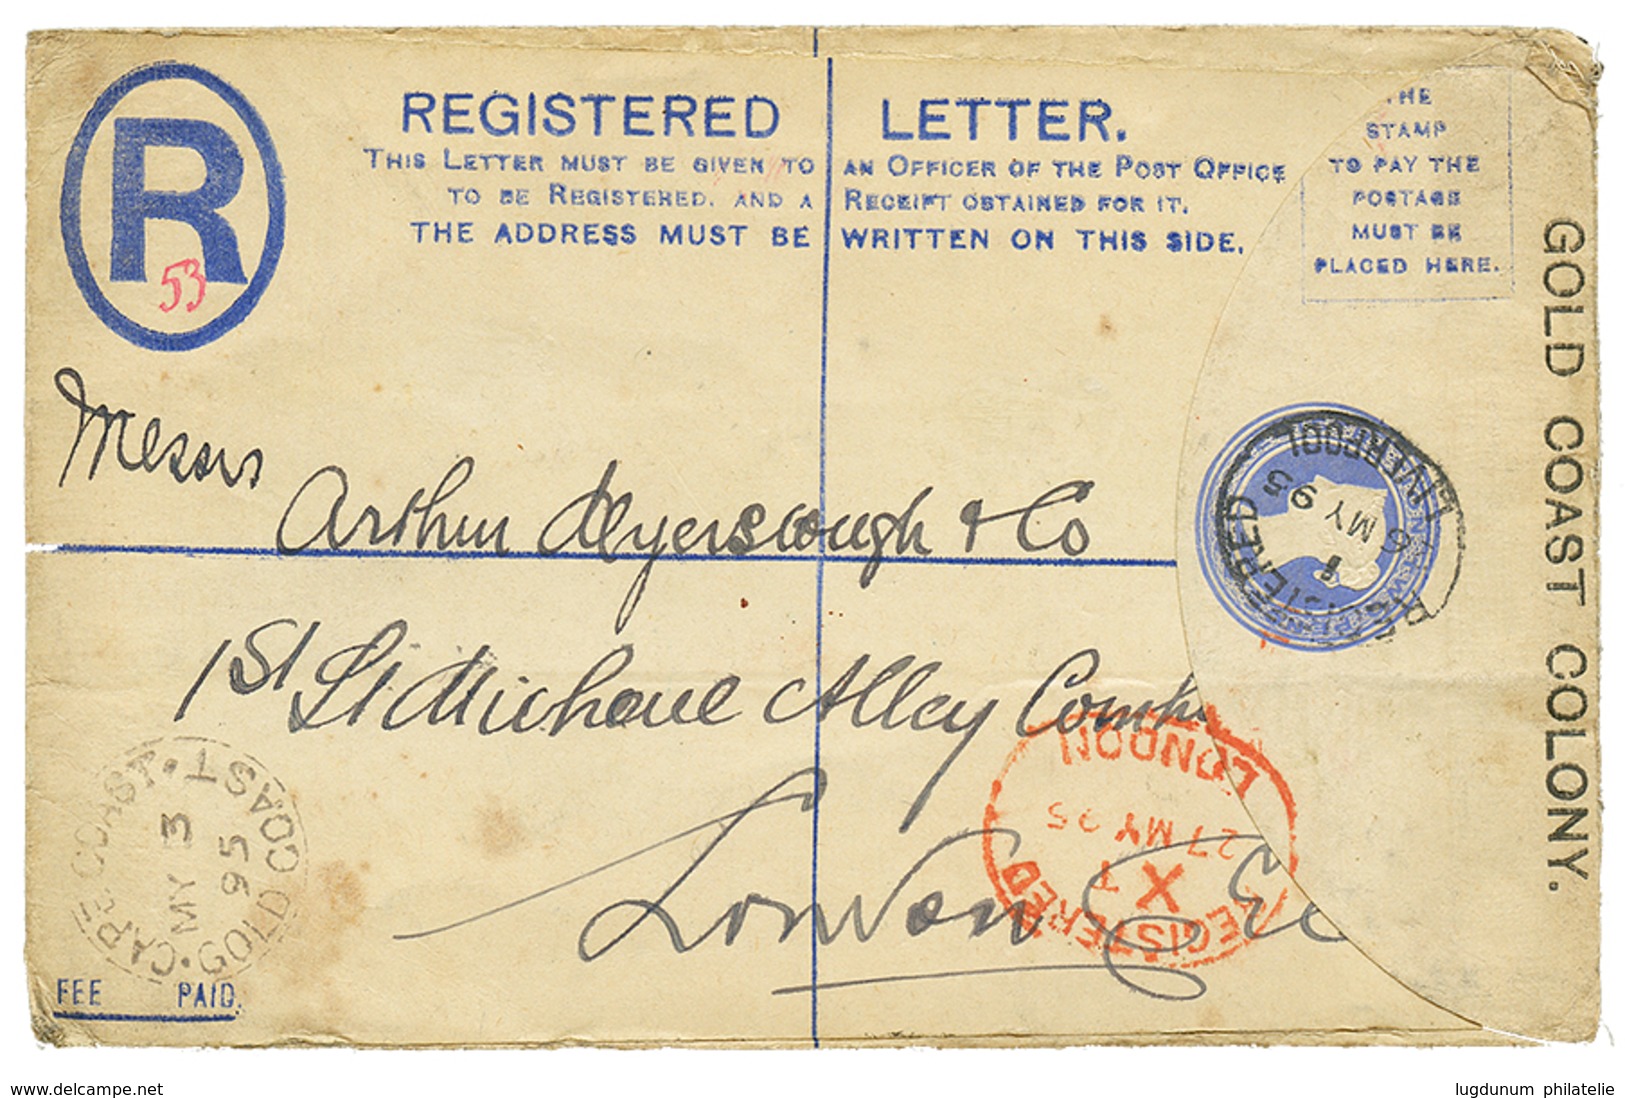 REGISTERED LETTER.
THIS LETTER MUST BE GIVEN TO AN OFFICER OF THE POST OFFICE
TO BE REGISTERED, AND A RECEIPT OBTAINED FOR IT.
THE ADDRESS MUST BE WRITTEN ON THIS SIDE.
THE
STAMP
TO PAY THE
POSTAGE
MUST BE
PLACED HERE.
R
53
GOLD COAST COLONY.
Messrs
Arthur Myerscough & Co
1 St Michael Alley
London EC
REGISTERED
6 MY 95
LIVERPOOL
REGISTERED
X
A
27 MY 95
LONDON
CAPE COAST.
MY 3
95
GOLD COAST
FEE PAID.
www.delcampe.net
lugdunum philatelie